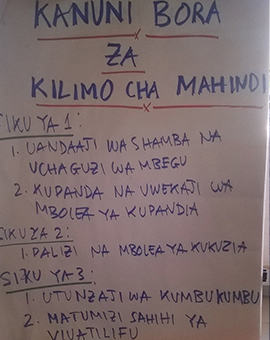 KANUNI BORA
ZA
KILIMO CHA MAHINDI
SIKU YA 1:
1. UANDAAJI WA SHAMBA NA
UCHAGUZI WA MBEGU
2. KUPANDA NA UWEKAJI WA
MBOLEA YA KUPANDIA
SIKU YA 2:
1. PALIZI NA MBOLEA YA KUKUZIA
SIKU YA 3:
1. UTUNZAJI WA KUMBUKUMBU
2. MATUMIZI SAHIHI YA
VIUATILIFU